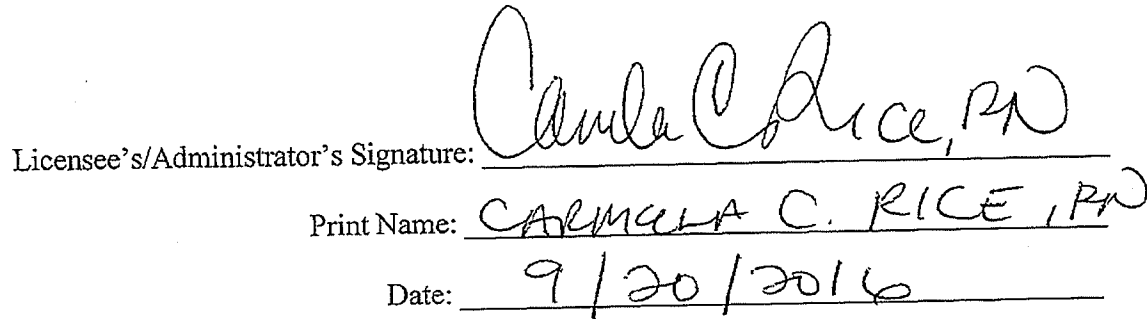 Licensee's/Administrator's Signature: Carmela C. Rice, RN
Print Name: CARMELA C. RICE, RN
Date: 9/20/2016